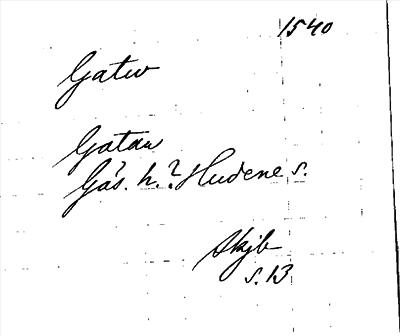 1540
Gatw
Gatan
Gås. h. ? Hudene s.
Skjb
s. 13